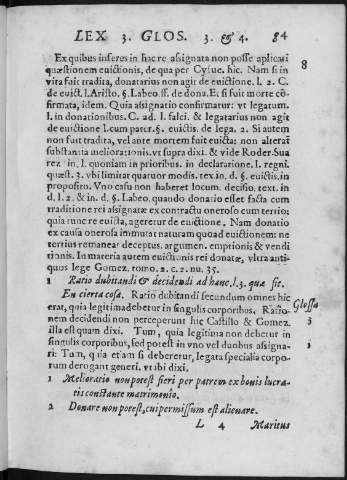 LEX 3. GLOS. 3. & 4. 84
Ex quibus inferes in hac re assignata non posse aplicari
quæstionem euictionis, de qua per Cyfue. hic. Nam si in
vita fuit tradita, donatarius non agit de euictione. l. 2. C.
de euict. l. Aristo. §. Labeo. ff. de dona. E. si fuit morte cō-
firmata, idem. Quia assignatio confirmatur: vt legatum.
l. in donationibus. C. ad l. falci. & legatarius non agit
de euictione l. cum pater. §. euictis. de lega. 2. Si autem
non fuit tradita, vel ante mortem fuit euicta: non alterat
substantia meliorationis. vt supra dixi. & vide Roder. Sua
rez in l. quoniam in prioribus. in declaratione l. regni.
quæst. 3. vbi limitat quatuor modis. tex. in d. §. euictis. in
proposito. Vno casu non haberet locum. decisio. text. in
d. l. 2. & in. d. §. Labeo. quando donatio esset facta cum
traditione rei assignatæ ex contractu oneroso cum tertio:
quia tunc re euicta, ageretur de euictione. Nam donatio
ex causa onerosa immutat naturam quoad euictionem: ne
tertius remaneat deceptus. argumen. emptionis & vendi
tionis. In materia autem euictionis rei donatæ, vltra anti-
quos lege Gomez. tomo. 2. c. 2. nu. 35.
8
1 Ratio dubitandi & decidendi ad hanc. l. 3. quæ sit.
En cierta cosa. Ratio dubitandi secundum omnes hic
erat, quia legitima debetur in singulis corporibus. Ratio-
nem decidendi non perceperunt hic Castillo & Gomez.
illa est quam dixi. Tum, quia legitima non debetur in
singulis corporibus, sed potest in vno vel duobus assigna-
ri: Tum, quia etiam si deberetur, legata specialia corpo-
rum derogant generi. vt ibi dixi.
Glossa
3
1
1 Melioratio non potest fieri per patrem ex bonis lucra-
tis constante matrimonio.
2 Donare non potest, cui permissum est alienare.
L 4 Maritus